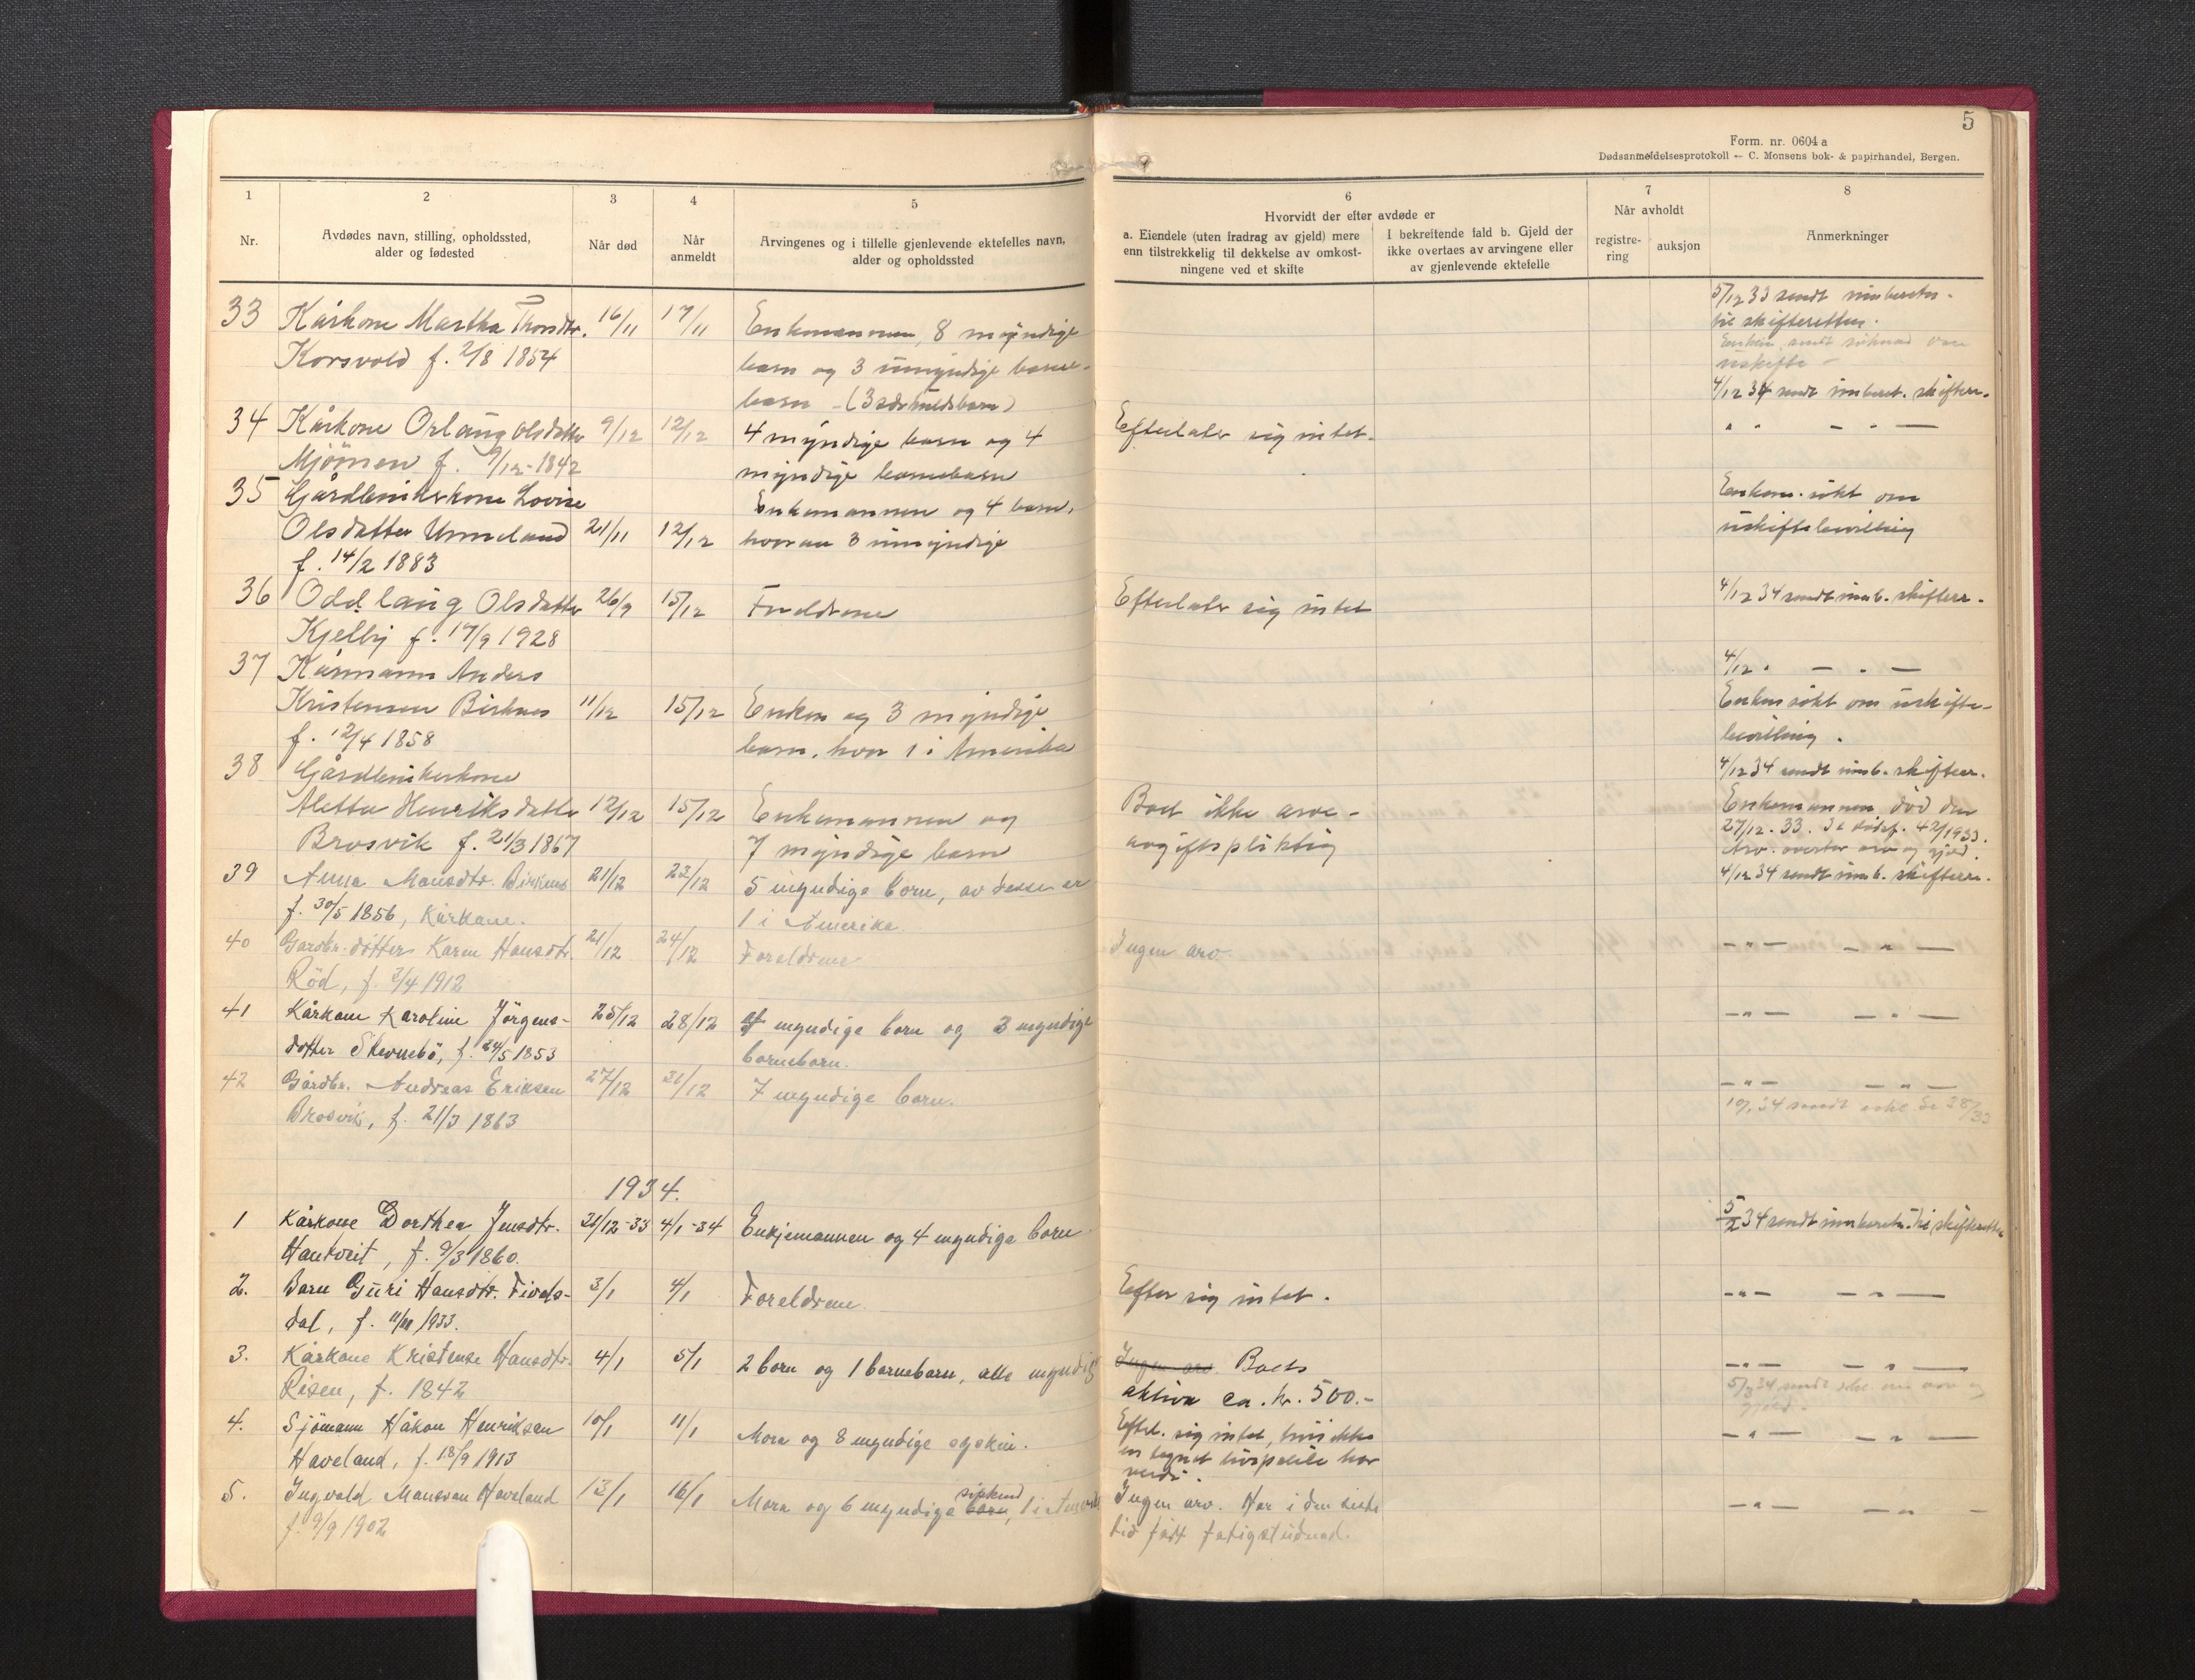 5
Form. nr. 0604 a
Dødsanmeldelsesprotokoll — C. Monsens bok- & papirhandel, Bergen.
1
2
3
4
5
Nr.
Avdødes navn, stilling, opholdssted,
alder og fødested
Når død
Når
anmeldt
Arvingenes og i tilfelle gjenlevende ektefelles navn,
alder og opholdssted
6
Hvorvidt der efter avdøde er
a. Eiendele (uten fradrag av gjeld) mere
enn tilstrekkelig til dekkelse av omkost-
ningene ved et skifte
I bekreftende fald b. Gjeld der
ikke overtaes av arvingene eller
av gjenlevende ektefelle
7
Når avholdt
registre-
ring
auksjon
8
Anmerkninger
33 Kårkone Martha Thorsdtr. 16/11 17/11 Enkemannen, 8 myndige
Korsvold f. 2/8 1854 barn og 3 umyndige barne-
barn - (3
5/12 33 sendt innberetn.
til skifteretten.
uskifte
4/12 34 sendt innberet. skifterr.
34 Kårkone Orlaug Olsdatter 9/12 12/12 4 myndige barn og 4 Efterlater sig intet.
Mjömen f. 9/12-1842 myndige barnebarn
35 Gårdbrukerkone Lovise Enkemannen og 4 barn,
Olsdatter Unneland 21/11 12/12 hvorav 3 umyndige
f. 14/2 1883
Enkem. søkt om
uskiftebevilling
36 Oddlaug Olsdatter 26/9 15/12 Foreldrene Efterlater sig intet 4/12 34 sendt innb. skifterr.
Kjelby f. 17/9 1928
37 Kårmann Anders 4/12 " — " —
Kristensen Birknes 11/12 15/12 Enken og 3 myndige Enken søkt om uskifte-
f. 12/4 1858 barn, hvor 1 i Amerika bevilling.
38 Gårdbrukerkone 4/12 34 sendt innb. skifterr.
Aletta Henriksdatter 12/12 15/12 Enkemannen og Boet ikke arve- Enkemannen död den
Brosvik f. 21/3 1867 7 myndige barn avgiftspliktig 27/12. 33. Se dödsf. 42/1933.
Arv. overtar arv og gjeld.
39 Anna Monsdtr. Birknes 21/12 22/12 5 myndige born, av desse er 4/12 34 sendt innb. skifterr.
f. 30/5 1856, Kårkone. 1 i Amerika.
40 Gardbr. dotter Karen Hansdtr. 21/12 24/12 Foreldrene Ingen arv — " — — " —
Röd, f. 3/4 1912
41 Kårkone Karoline Jörgens- 25/12 28/12 4 myndige born og 3 myndige — " — — " —
dotter Skernebö, f. 24/5 1853 borneborn.
42 Gårdbr. Andreas Eriksen 27/12 31/12 7 myndige born. — " — — " —
Brosvik, f. 21/3 1863
1934.
1 Kårkone Dorthea Jensdtr. 31/12-33 4/1-34 Enkjemannen og 4 myndige born 5/2 34 sendt innberetn. til skifteretten
Hantveit, f. 9/3 1860.
2. Barn Guri Hansdtr. Fivels- 3/1 4/1 Foreldrene. Efter sig intet. — " — — " —
dal, f. 11/11 1933.
3. Kårkone Kristense Hansdtr. 4/1 5/1 2 born og 1 barnebarn, alle myndige Ingen arv. Boets — " — — " —
Risen, f. 1842 aktiva ca. kr. 500.-
4. Sjömann Håkon Henriksen 10/1 11/1 Mora og 8 myndige syskin. Efterl. sig intet, hvis ikke — " — — " —
Haveland, f. 18/9 1913 en tegnet livspolise har
verdi.
5. Ingvald Monsson Haveland 13/1 16/1 Mora og 6 myndige born syskend, 1 i Amerika Ingen arv. Har i den siste — " — — " —
f. 9/9 1902 tid fått fatigstudnad.